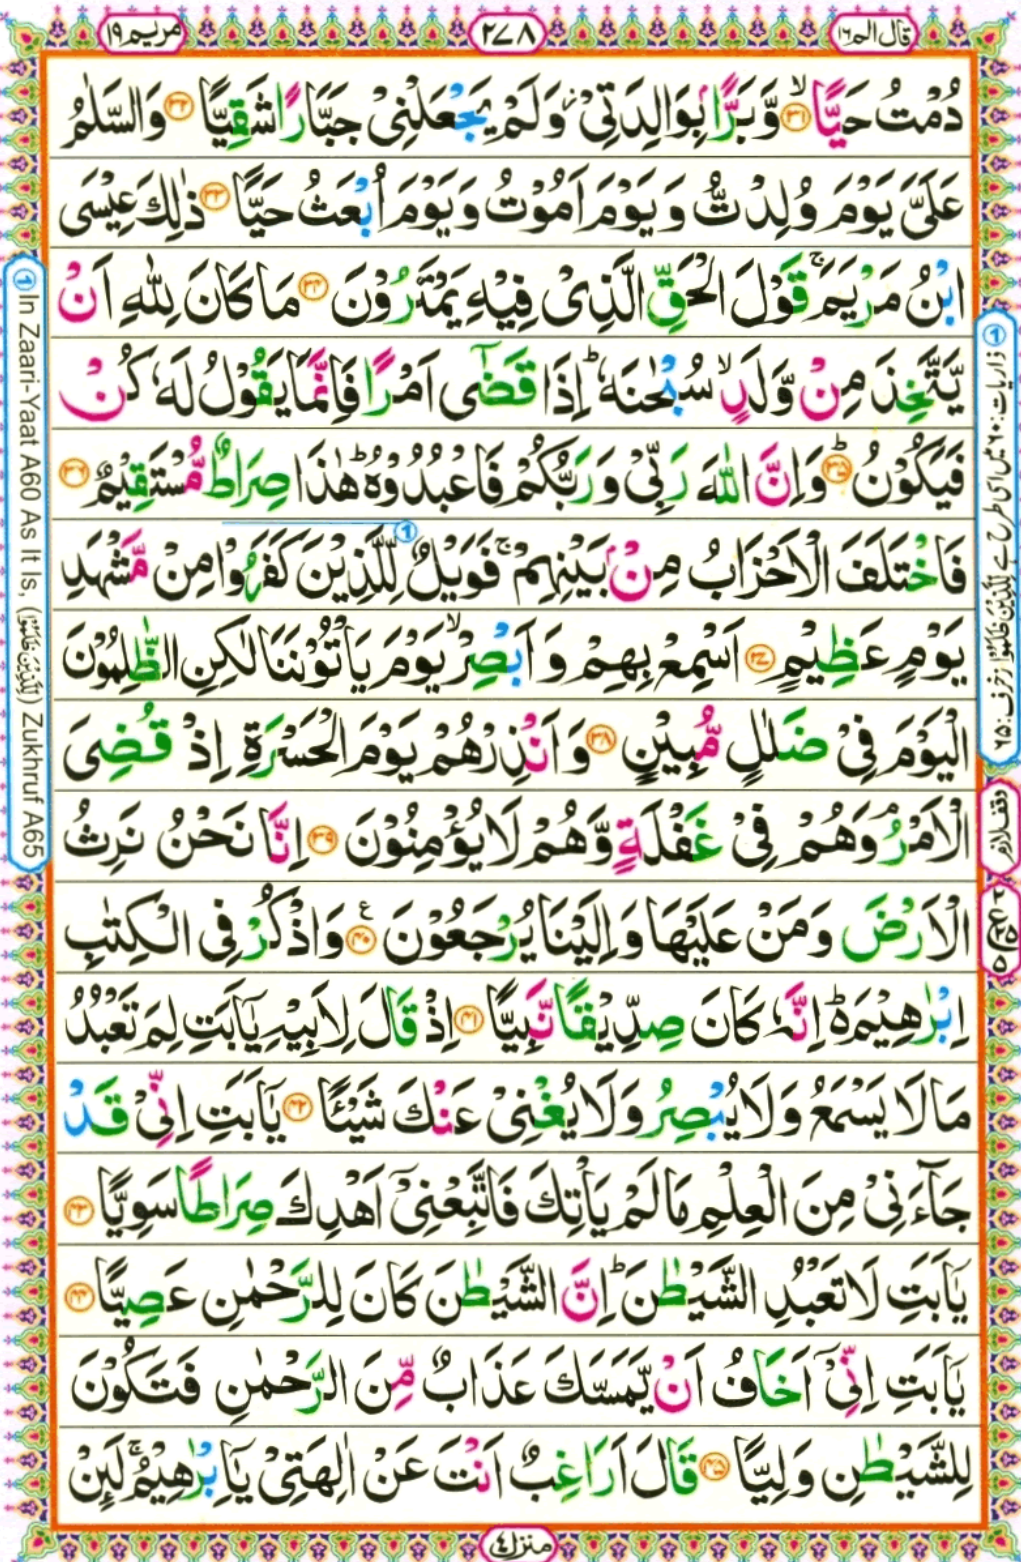 قال الم ١٦
٢٧٨
مريم ١٩
دُمْتُ حَيًّا ۙ‏﴿۳۱﴾ وَّبَرًّۢا بِوَالِدَتِىْ وَلَمْ يَجْعَلْنِىْ جَبَّارًا شَقِيًّا ﴿۳۲﴾ وَالسَّلٰمُ
عَلَىَّ يَوْمَ وُلِدْتُّ وَيَوْمَ اَمُوْتُ وَيَوْمَ اُبْعَثُ حَيًّا ﴿۳۳﴾ ذٰلِكَ عِيْسَى
ابْنُ مَرْيَمَ ۚ قَوْلَ الْحَقِّ الَّذِىْ فِيْهِ يَمْتَرُوْنَ ﴿۳۴﴾ مَا كَانَ لِلّٰهِ اَنْ
يَّتَّخِذَ مِنْ وَّلَدٍ ۙ سُبْحٰنَهٗ ؕ اِذَا قَضٰٓى اَمْرًا فَاِنَّمَا يَقُوْلُ لَهٗ كُنْ
فَيَكُوْنُ ؕ‏﴿۳۵﴾ وَاِنَّ اللّٰهَ رَبِّىْ وَرَبُّكُمْ فَاعْبُدُوْهُ ؕ هٰذَا صِرَاطٌ مُّسْتَقِيْمٌ ﴿۳۶﴾
فَاخْتَلَفَ الْاَحْزَابُ مِنْۢ بَيْنِهِمْ ۚ فَوَيْلٌ ① لِّلَّذِيْنَ كَفَرُوْا مِنْ مَّشْهَدِ
يَوْمٍ عَظِيْمٍ ﴿۳۷﴾ اَسْمِعْ بِهِمْ وَاَبْصِرْ ۙ يَوْمَ يَاْتُوْنَنَا لٰكِنِ الظّٰلِمُوْنَ
الْيَوْمَ فِىْ ضَلٰلٍ مُّبِيْنٍ ﴿۳۸﴾ وَاَنْذِرْهُمْ يَوْمَ الْحَسْرَةِ اِذْ قُضِىَ
الْاَمْرُ ۘ وَهُمْ فِىْ غَفْلَةٍ وَّهُمْ لَا يُؤْمِنُوْنَ ﴿۳۹﴾ اِنَّا نَحْنُ نَرِثُ
الْاَرْضَ وَمَنْ عَلَيْهَا وَاِلَيْنَا يُرْجَعُوْنَ ﴿۴۰﴾ ع وَاذْكُرْ فِى الْكِتٰبِ
اِبْرٰهِيْمَ ؕ اِنَّهٗ كَانَ صِدِّيْقًا نَّبِيًّا ﴿۴۱﴾ اِذْ قَالَ لِاَبِيْهِ يٰۤاَبَتِ لِمَ تَعْبُدُ
مَا لَا يَسْمَعُ وَلَا يُبْصِرُ وَلَا يُغْنِىْ عَنْكَ شَيْئًا ﴿۴۲﴾ يٰۤاَبَتِ اِنِّىْ قَدْ
جَآءَنِىْ مِنَ الْعِلْمِ مَا لَمْ يَاْتِكَ فَاتَّبِعْنِىْۤ اَهْدِكَ صِرَاطًا سَوِيًّا ﴿۴۳﴾
يٰۤاَبَتِ لَا تَعْبُدِ الشَّيْطٰنَ ؕ اِنَّ الشَّيْطٰنَ كَانَ لِلرَّحْمٰنِ عَصِيًّا ﴿۴۴﴾
يٰۤاَبَتِ اِنِّىْۤ اَخَافُ اَنْ يَّمَسَّكَ عَذَابٌ مِّنَ الرَّحْمٰنِ فَتَكُوْنَ
لِلشَّيْطٰنِ وَلِيًّا ﴿۴۵﴾ قَالَ اَرَاغِبٌ اَنْتَ عَنْ اٰلِهَتِىْ يٰۤاِبْرٰهِيْمُ ۚ لَئِنْ
① ذاریات:٦٠ میں اسی طرح ہے لِلَّذِيْنَ ظَلَمُوْا زخرف:٦٥
وقف لازم
٢ ع ٢٥ ٥
① In Zaari-Yaat A60 As It Is, (لِلَّذِيْنَ ظَلَمُوْا) Zukhruf A65
منزل ٤